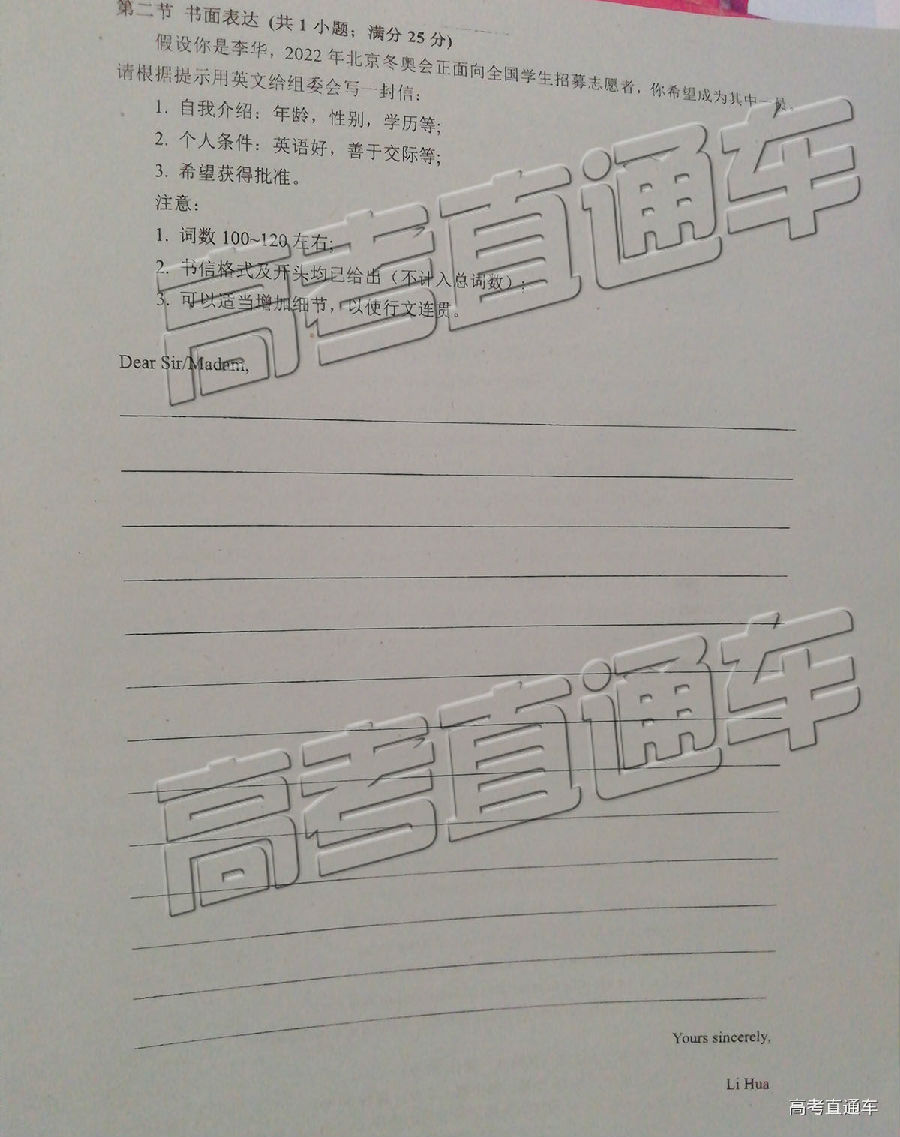 第二节 书面表达 (共 1 小题；满分 25 分)
假设你是李华，2022 年北京冬奥会正面向全国学生招募志愿者，你希望成为其中一员，
请根据提示用英文给组委会写一封信：
1. 自我介绍：年龄，性别，学历等；
2. 个人条件：英语好，善于交际等；
3. 希望获得批准。
注意：
1. 词数 100~120 左右；
2. 书信格式及开头均已给出（不计入总词数）；
3. 可以适当增加细节，以使行文连贯。
高考直通车
Dear Sir/Madam,
高考直通车
Yours sincerely,
Li Hua
高考直通车